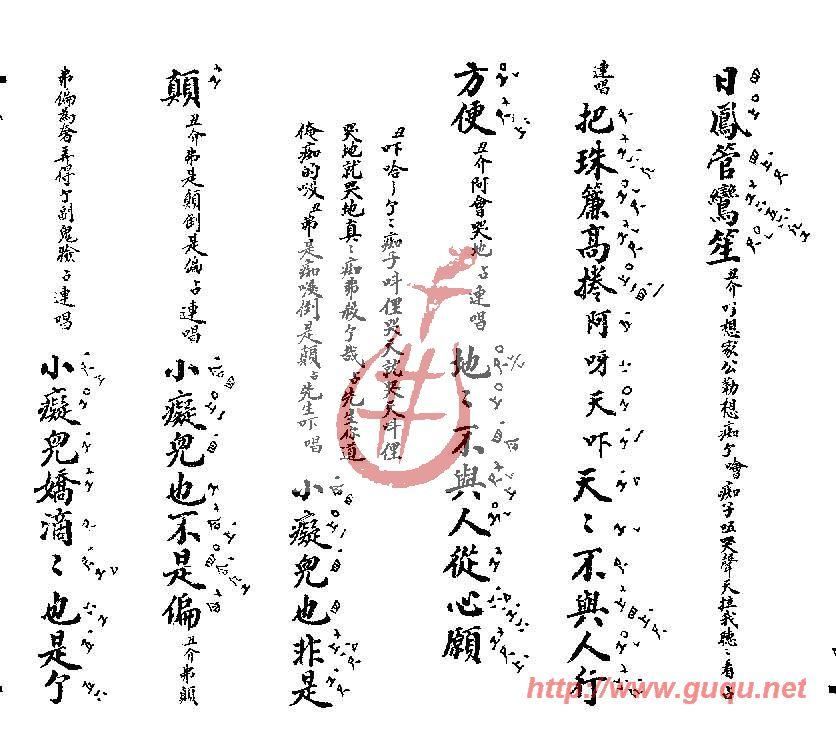 日鳳管鸞笙 丑介吓想家公勒想痴个噲痴子哭聲天拉我聽〻看占
連唱 把珠簾高捲阿呀天吓天〻不與人行
方便 丑介阿會哭地占連唱 地〻不與人從心願
丑吓哈〻个〻痴子呌俚哭天就哭天呌俚
哭地就哭地真〻痴弗殺个哉占先生你道
俺痴的吺丑弗是痴唳倒是顛占先生吓唱 小癡兒也非是
顛 丑介弗是顛倒是偏占連唱 小癡兒也不是偏 丑介弗顛
弗偏為奢弄得个副鬼臉占連唱 小癡兒嬌滴〻也是个
http://www.guqu.net